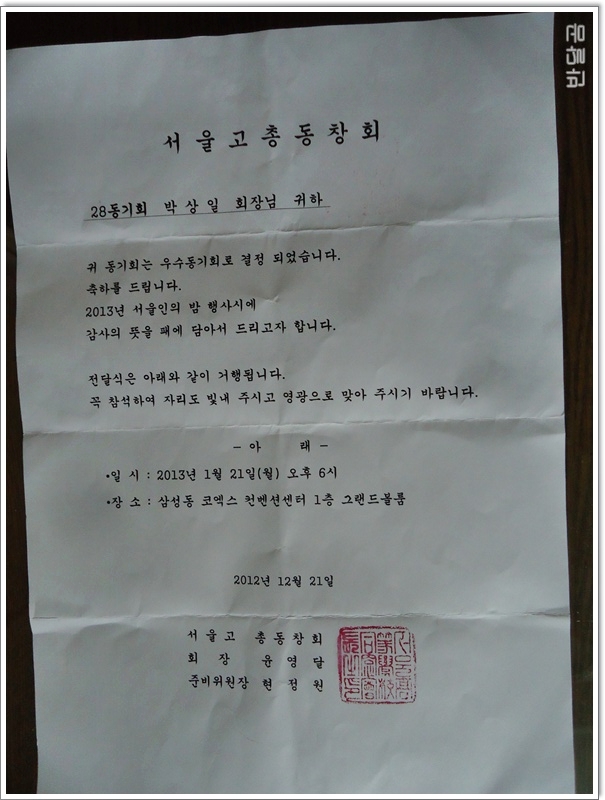 서울고총동창회
28동기회 박상일 회장님 귀하
귀 동기회는 우수동기회로 결정 되었습니다.
축하를 드립니다.
2013년 서울인의 밤 행사시에
감사의 뜻을 패에 담아서 드리고자 합니다.
전달식은 아래와 같이 거행됩니다.
꼭 참석하여 자리도 빛내 주시고 영광으로 맞아 주시기 바랍니다.
- 아 래 -
•일 시 : 2013년 1월 21일(월) 오후 6시
•장 소 : 삼성동 코엑스 컨벤션센터 1층 그랜드볼룸
2012년 12월 21일
서울고 총동창회
회 장 윤영달
준비위원장 현정원